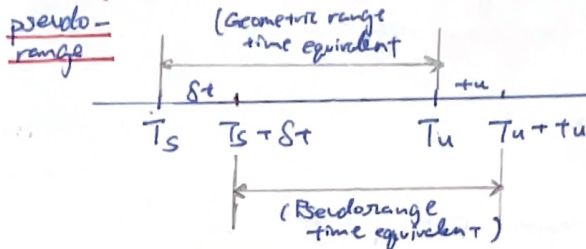 pseudo-
range
(Geometric range
time equivalent
δt
tu
Ts
Ts + δt
Tu
Tu + tu
(Pseudorange
time equivalent)